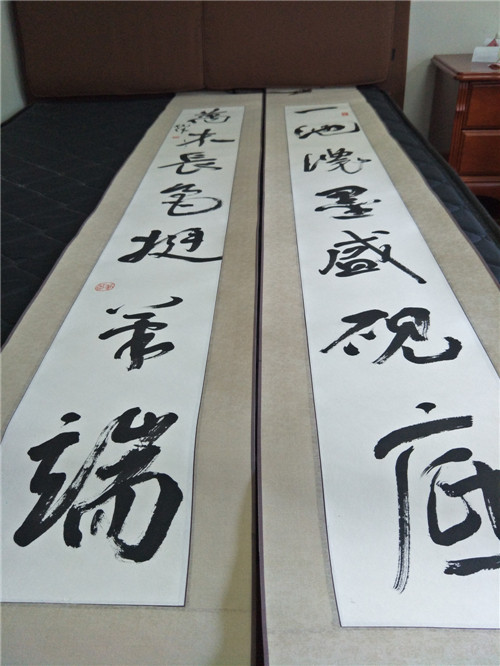 一池濃墨盛硯底
萬木長毫挺筆端